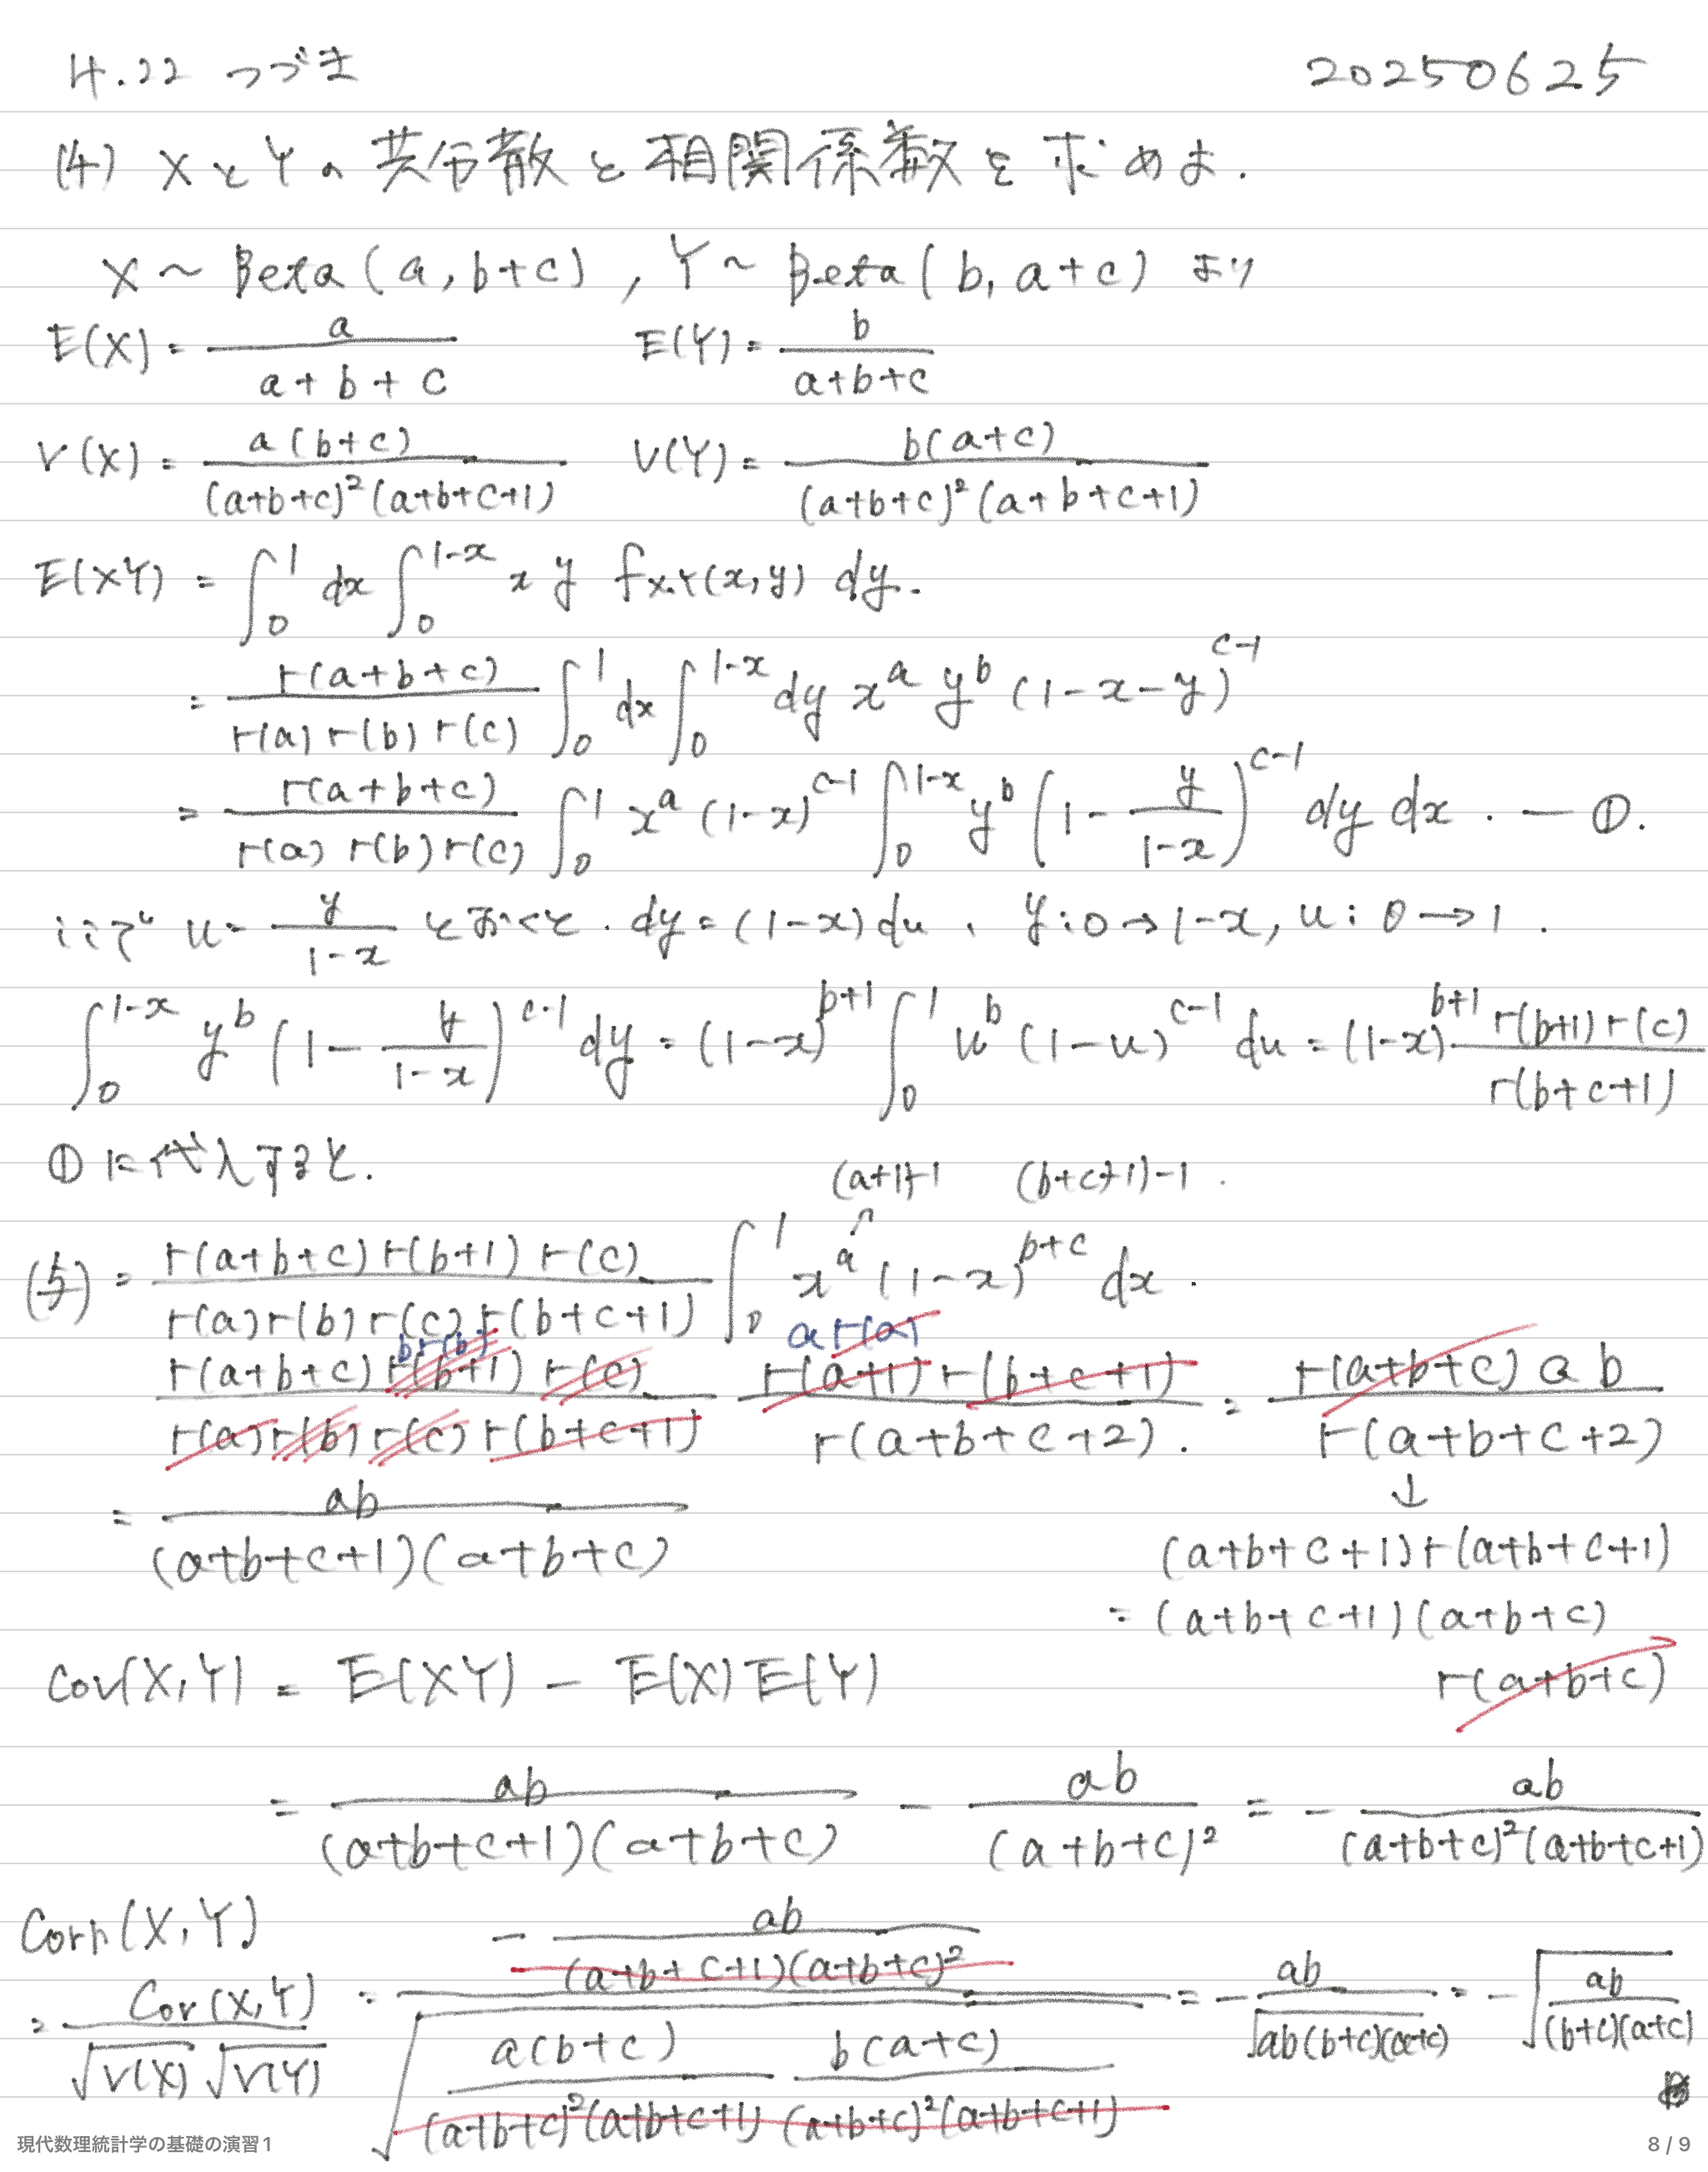 4.22 つづき 20250625
(4) XとYの共分散と相関係数を求めよ.
X ~ Beta(a, b+c), Y ~ Beta(b, a+c) より
E(X) = a/(a+b+c) E(Y) = b/(a+b+c)
V(X) = a(b+c)/((a+b+c)²(a+b+c+1)) V(Y) = b(a+c)/((a+b+c)²(a+b+c+1))
E(XY) = ∫₀¹ dx ∫₀^{1-x} x y f_{X,Y}(x,y) dy.
= Γ(a+b+c)/(Γ(a)Γ(b)Γ(c)) ∫₀¹ dx ∫₀^{1-x} dy x^a y^b (1-x-y)^{c-1}
= Γ(a+b+c)/(Γ(a)Γ(b)Γ(c)) ∫₀¹ x^a (1-x)^{c-1} ∫₀^{1-x} y^b (1 - y/(1-x))^{c-1} dy dx. — ①.
ここで u = y/(1-x) とおくと. dy = (1-x)du, y: 0→1-x, u: 0→1.
∫₀^{1-x} y^b (1 - y/(1-x))^{c-1} dy = (1-x)^{b+1} ∫₀¹ u^b (1-u)^{c-1} du = (1-x)^{b+1} Γ(b+1)Γ(c)/Γ(b+c+1)
①に代入すると.
(a+1)-1 (b+c+1)-1.
(与) = Γ(a+b+c)Γ(b+1)Γ(c)/(Γ(a)Γ(b)Γ(c)Γ(b+c+1)) ∫₀¹ x^a (1-x)^{b+c} dx.
bΓ(b) aΓ(a)
Γ(a+b+c)Γ(b+1)Γ(c)/(Γ(a)Γ(b)Γ(c)Γ(b+c+1)) Γ(a+1)Γ(b+c+1)/Γ(a+b+c+2). = Γ(a+b+c)ab/Γ(a+b+c+2)
↓
= ab/((a+b+c+1)(a+b+c))
(a+b+c+1)Γ(a+b+c+1)
= (a+b+c+1)(a+b+c)
Γ(a+b+c)
Cov(X,Y) = E(XY) - E(X)E(Y)
= ab/((a+b+c+1)(a+b+c)) - ab/(a+b+c)² = - ab/((a+b+c)²(a+b+c+1))
Corr(X,Y)
= Cov(X,Y)/(√V(X) √V(Y)) = - ab/((a+b+c+1)(a+b+c)²) / √(a(b+c)/((a+b+c)²(a+b+c+1)) b(a+c)/((a+b+c)²(a+b+c+1))) = - ab/√(ab(b+c)(a+c)) = - √(ab/((b+c)(a+c)))
現代数理統計学の基礎の演習1 8 / 9